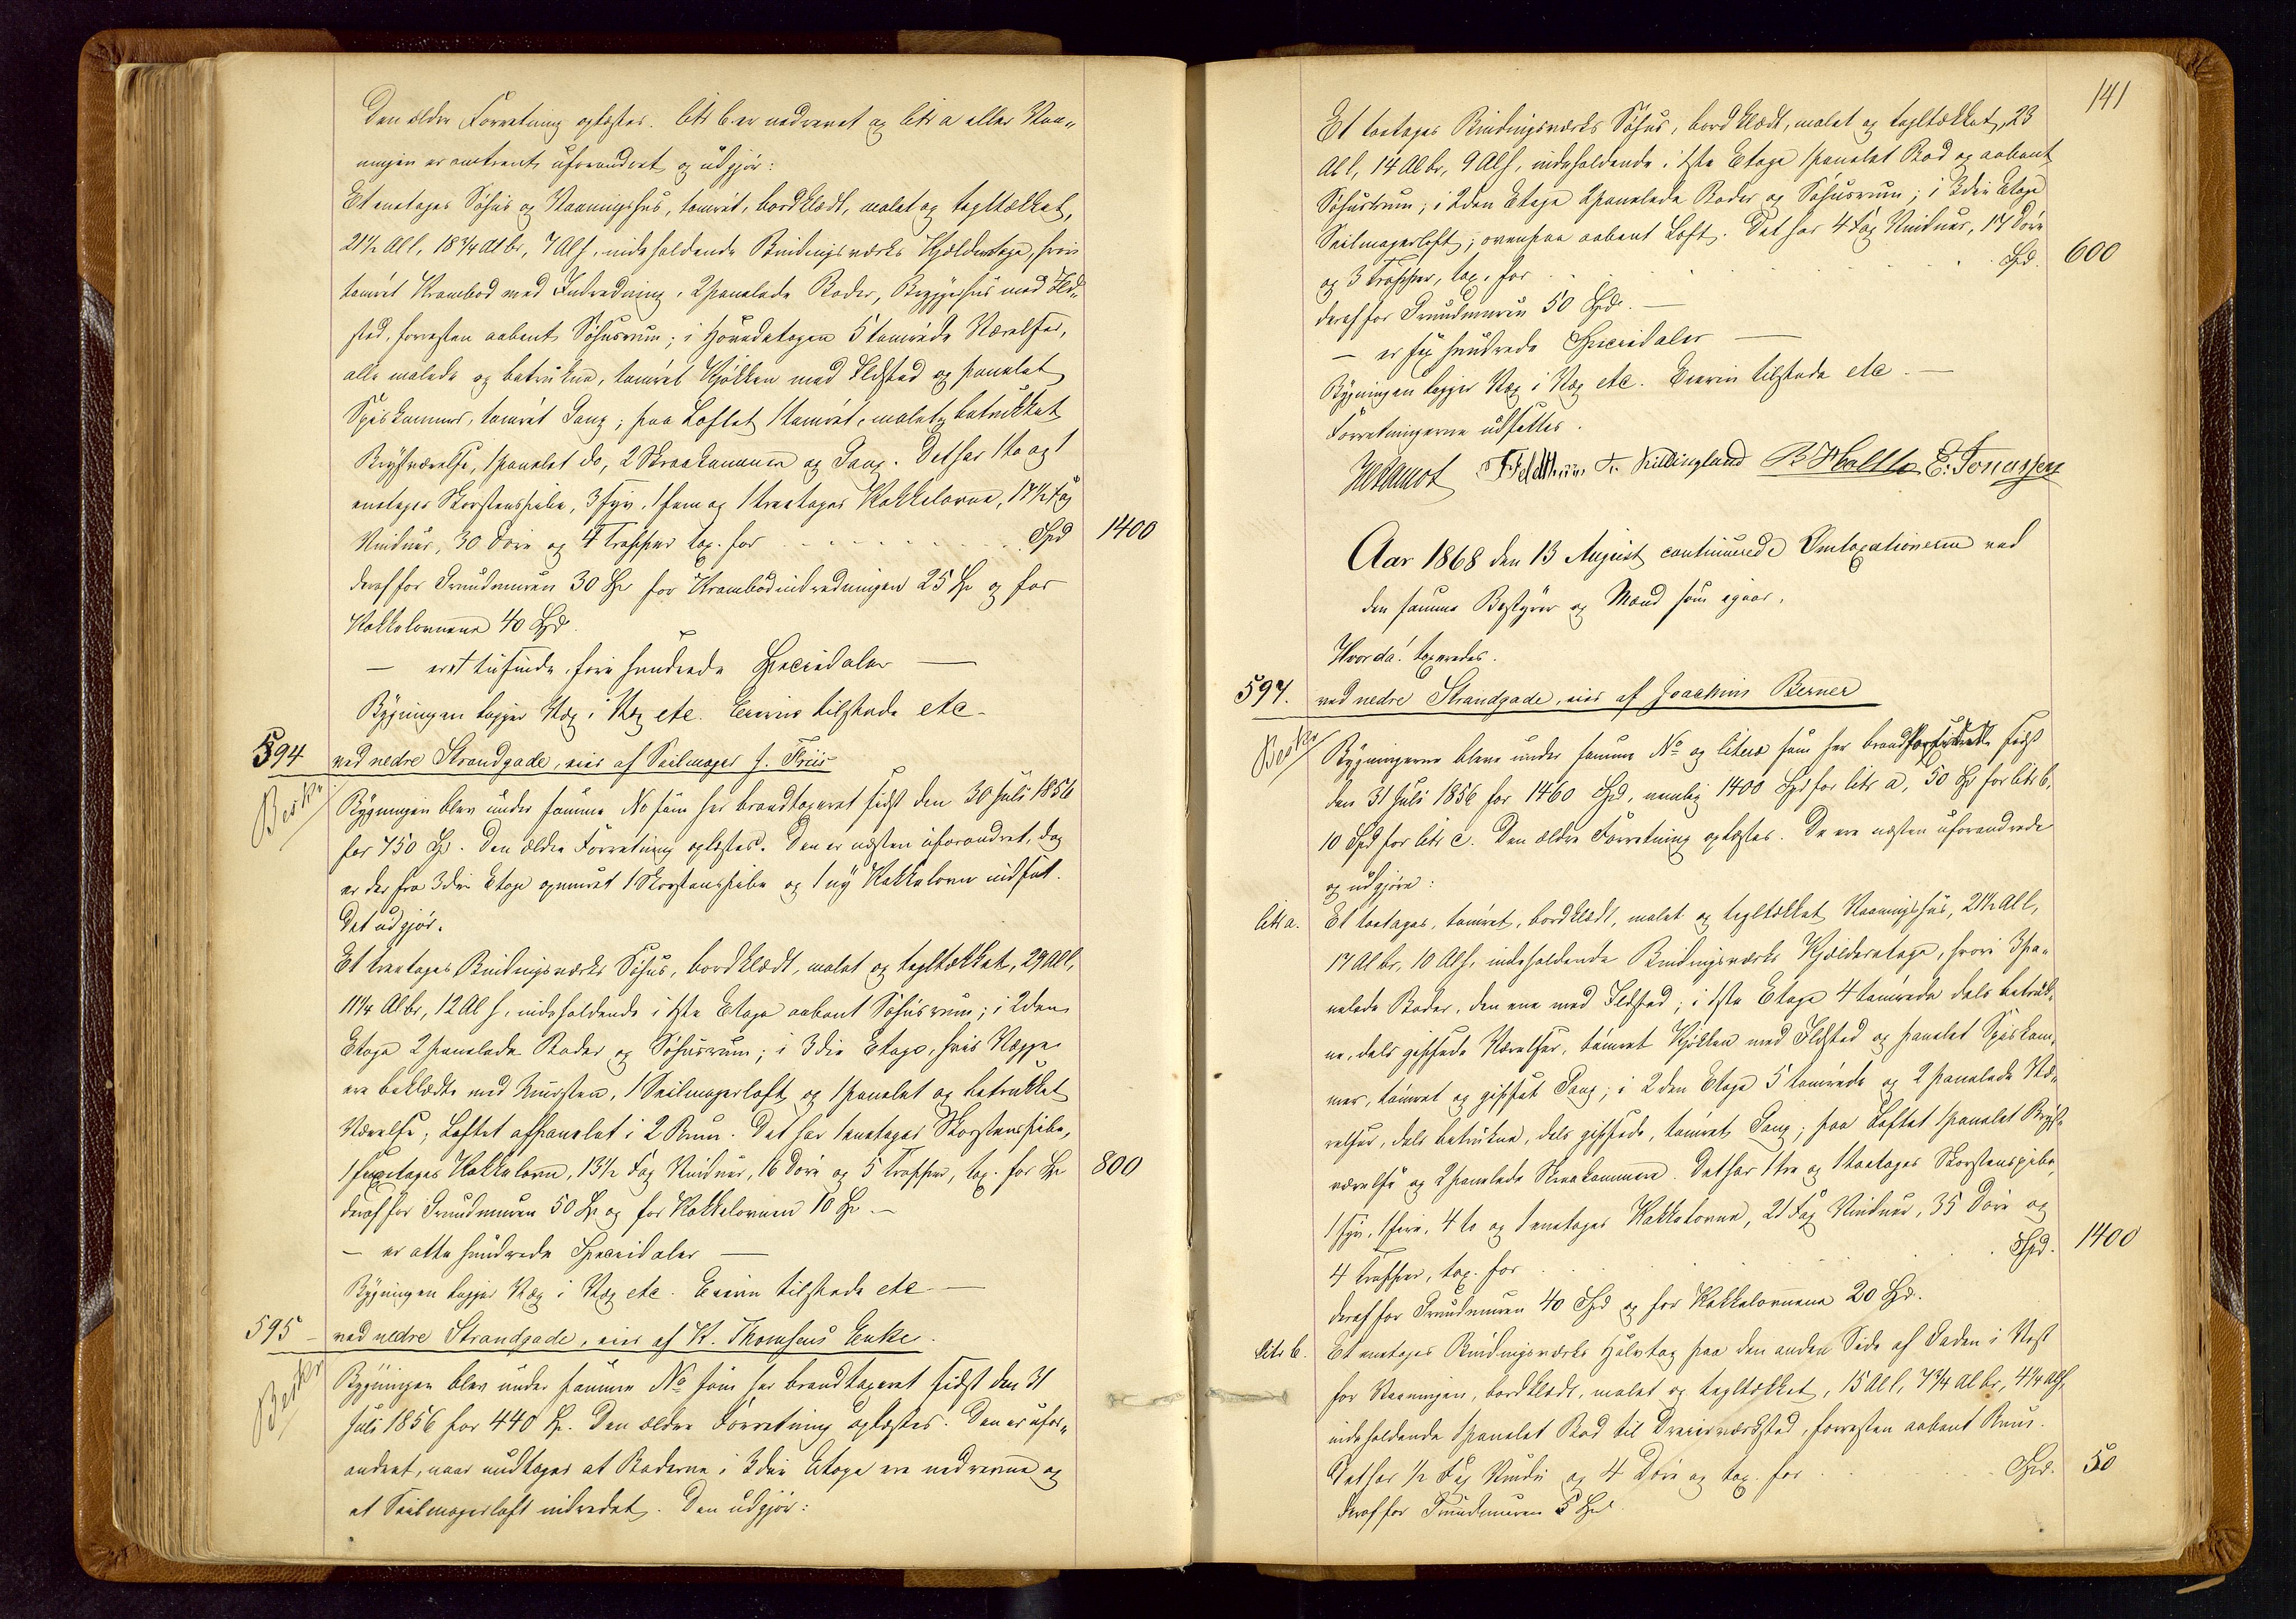 Den ældre Forretning oplæstes. litr b er nedrevet og litr a eller Vaa„
ningen er omtrent uforandret og udgjør:
Et enetages Søhus og Vaaningshus, tømret, bordklædt, malet og tegltækket,
21½ Al l, 18¾ Al br, 7 Al h, indeholdende Bindingsværks Kjælderetage, hvori
tømret Krambod med Indredning, 2 panelede Boder, Bryggehus med Ild„
sted, forresten aabent Søhusrum; i Hovedetagen 5 tømrede Værelser,
alle malede og betrukne, tømret Kjøkken med Ildsted og panelet
Spiskammer, tømret Gang; paa Loftet 1 tømret, malet og betrukket
Kvistværelse, 1 panelet do, 2 Skraakammere og Gang. Det har 1 to og 1
enetages Skorstenspibe, 3 fyr, 1 fem og 1 treetages Kakkelovne, 17½ Fag
Vinduer, 30 Døre og 4 Trapper tax. for Spd 1400
deraf for Grundmuren 30 Sp for Krambodindredningen 25 Sp og for
Kakkelovnene 40 Spd.
— er et tusinde, fire hundrede Speciedaler —
Bygningen ligger Væg i Væg etc. Eieren tilstede etc.
594 ved nedre Strandgade, eies af Seilmager J. Friis
Beskr Bygningen blev under samme No som her brandtaxeret sidst den 30 Juli 1856
for 750 Sp. Den ældre Forretning oplæstes. Den er næsten uforandret, dog
er der fra 3die Etage opmuret 1 Skorstenspibe og 1 ny Kakkelovn indsat.
Det udgjør:
Et treetages Bindingsværks Søhus, bordklædt, malet og tegltækket, 29 Al l,
11¼ Al br, 12 Al h, indeholdende i 1ste Etage aabent Søhusrum; i 2den
Etage 2 panelede Boder og Søhusrum; i 3die Etage, hvis Vægge
ere beklædte med Mursten, 1 Seilmagerloft og 1 panelet og betrukket
Værelse; Loftet afpanelet i 2 Rum. Det har 1 enetages Skorstenspibe,
1 Kakkelovn, 13½ Fag Vinduer, 16 Døre og 5 Trapper, tax. for Sp 800
deraf for Grundmuren 50 Sp og for Kakkelovnen 10 Sp —
— er otte hundrede Speciedaler —
Bygningen ligger Væg i Væg etc. Eieren tilstede etc —
595 – ved nedre Strandgade, eies af K. Thomsens Enke.
Beskr Bygningen blev under samme No som her brandtaxeret sidst den 31
Juli 1856 for 440 Sp. Den ældre Forretning oplæstes. Den er ufor„
andret, naar undtages at Boderne i 3die Etage ere nedrevne og
et Seilmagerloft indredet. Den udgjør:
141
Et toetages Bindingsværks Søhus, bordklædt, malet og tegltækket, 23
Al l, 14 Al br, 9 Al h, indeholdende i 1ste Etage 1 panelet Bod og aabent
Søhusrum; i 2den Etage 2 panelede Boder og Søhusrum; i 3die Etage
Seilmagerloft; ovenpaa aabent Loft. Det har 4 Fag Vinduer, 17 Døre
og 3 Trapper, tax. for Spd. 600
deraf for Grundmuren 50 Spd. —
— er sex hundrede Speciedaler —
Bygningen ligger Væg i Væg etc. Eieren tilstede etc. —
Forretningerne udsattes.
Fr. Killingland E. Jonassen
Aar 1868 den 13 August continuerede Omtaxationerne ved
den samme Bestyrer og Mænd som igaar.
Hvorda! taxeredes.
597. ved nedre Strandgade, eies af Joachim Berner
Beskr Bygningerne bleve under samme No og litera som her brandforsikret sidst
den 31 Juli 1856 for 1460 Spd, nemlig 1400 Spd for litr a, 50 Sp for litr b,
10 Spd for litr c. Den ældre Forretning oplæstes. De ere næsten uforandrede
og udgjøre:
litr a. Et toetages, tømret, bordklædt, malet og tegltækket Vaaningshus, 21½ Al l,
17 Al br, 10 Al h, indeholdende Bindingsværks Kjælderetage, hvori 3 pa„
nelede Boder, den ene med Ildsted; i 1ste Etage 4 tømrede dels betruk„
ne, dels gipsede Værelser, tømret Kjøkken med Ildsted og panelet Spiskam„
mer, tømret og gipset Gang; i 2den Etage 5 tømrede og 2 panelede Væ„
relser, dels betrukne, dels gipsede, tømret Gang; paa Loftet 1 panelet Kvist„
værelse og 2 panelede Skraakammere. Det har 1 tre og 1 toetages Skorstenspibe,
1 fyr, 1 fire, 4 to og 1 enetages Kakkelovne, 21 Fag Vinduer, 35 Døre og
4 Trapper, tax. for Spd. 1400
deraf for Grundmuren 40 Spd og for Kakkelovnene 20 Spd.
Litr b. Et enetages Bindingsværks Halvtag paa den anden Side af Gaden i Vest
for Vaaningen, bordklædt, malet og tegltækket, 15 Al l, 7¾ Al br, 4¼ Al h,
indeholdende 1 panelet Bod til Dreierværksted, forresten aabent Rum.
Det har ½ Fag Vindu og 4 Døre og tax. for Spd. 50
deraf for Grundmuren 5 Spd